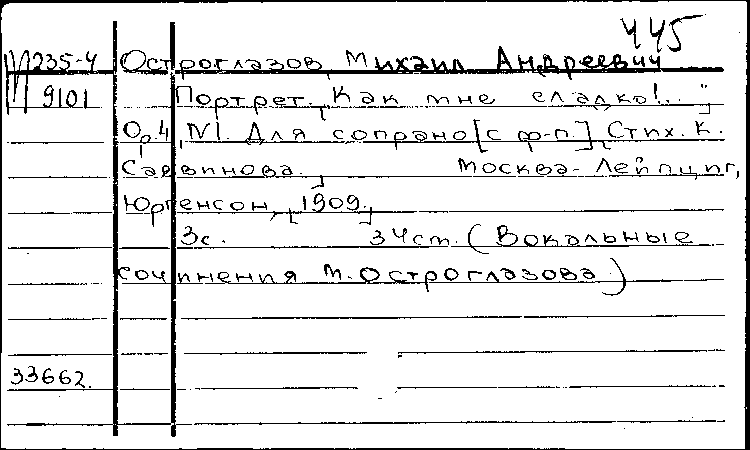 445
М 235-4 Остроглазов, Михаил Андреевич
9101 Портрет. „Как мне сладко!.."
Op. 4, N1. Для сопрано [с ф-п.]. Стих. К.
Саввинова. Москва-Лейпциг,
Юргенсон, [1909.]
3с. 34см. (Вокальные
сочинения М. Остроглазова.)
33662.